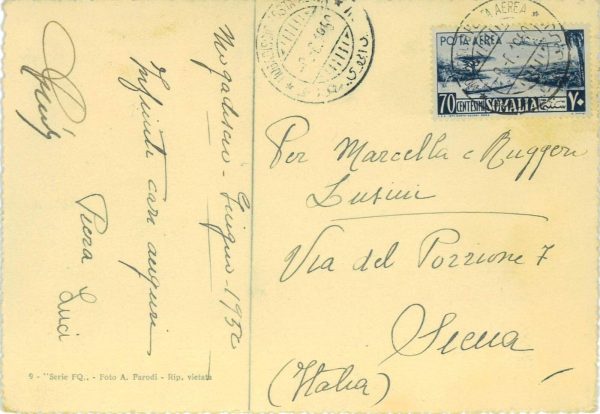 Mogadiscio - Giugno - 1952
Infiniti cari auguri
Piera Luci
9 - "Serie FQ.. - Foto A. Parodi - Rip. vietata
POSTA AEREA
POSTA AEREA
70 CENTESIMI SOMALIA ٧٠
Per Marcella e Ruggero
Lusini
Via del Porrione 7
Siena
(Italia)